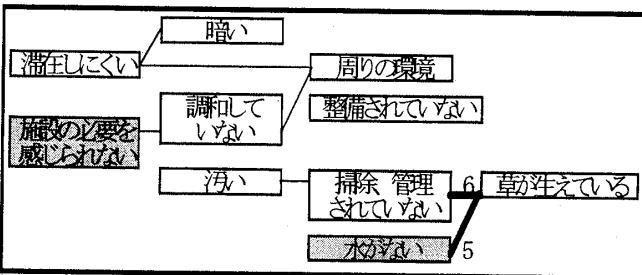 暗い
滞在しにくい
周りの環境
調和して
いない
整備されていない
施設の必要を
感じられない
汚い
掃除、管理
されていない
6
草が生えている
水がない
5